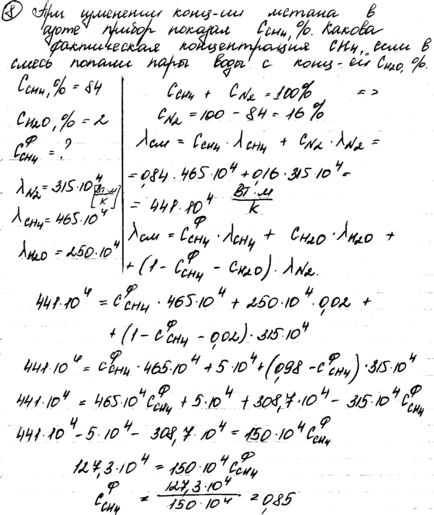 8) При изменении конц-ии метана в
азоте прибор показал Cсн4, %. Какова
фактическая концентрация CH4, если в
смесь попали пары воды с конц-ей Cн2о, %.
Cсн4, % = 84
Cн2о, % = 2
C^Ф сн4 = ?
λN2 = 315·10⁴ [Вт·м/К]
λсн4 = 465·10⁴
λн2о = 250·10⁴
Cсн4 + CN2 = 100% =>
CN2 = 100 - 84 = 16 %
λсм = Cсн4 · λсн4 + CN2 · λN2 =
= 0,84 · 465·10⁴ + 0,16 · 315·10⁴ =
= 441·10⁴ Вт·м/К
λсм = C^Ф сн4 · λсн4 + Cн2о · λн2о +
+ (1 - C^Ф сн4 - Cн2о) · λN2.
441·10⁴ = C^Ф сн4 · 465·10⁴ + 250·10⁴ · 0,02 +
+ (1 - C^Ф сн4 - 0,02) · 315·10⁴
441·10⁴ = C^Ф сн4 · 465·10⁴ + 5·10⁴ + (0,98 - C^Ф сн4) · 315·10⁴
441·10⁴ = 465·10⁴ C^Ф сн4 + 5·10⁴ + 308,7·10⁴ - 315·10⁴ C^Ф сн4
441·10⁴ - 5·10⁴ - 308,7·10⁴ = 150·10⁴ C^Ф сн4
127,3·10⁴ = 150·10⁴ C^Ф сн4
C^Ф сн4 = 127,3·10⁴ / 150·10⁴ = 0,85